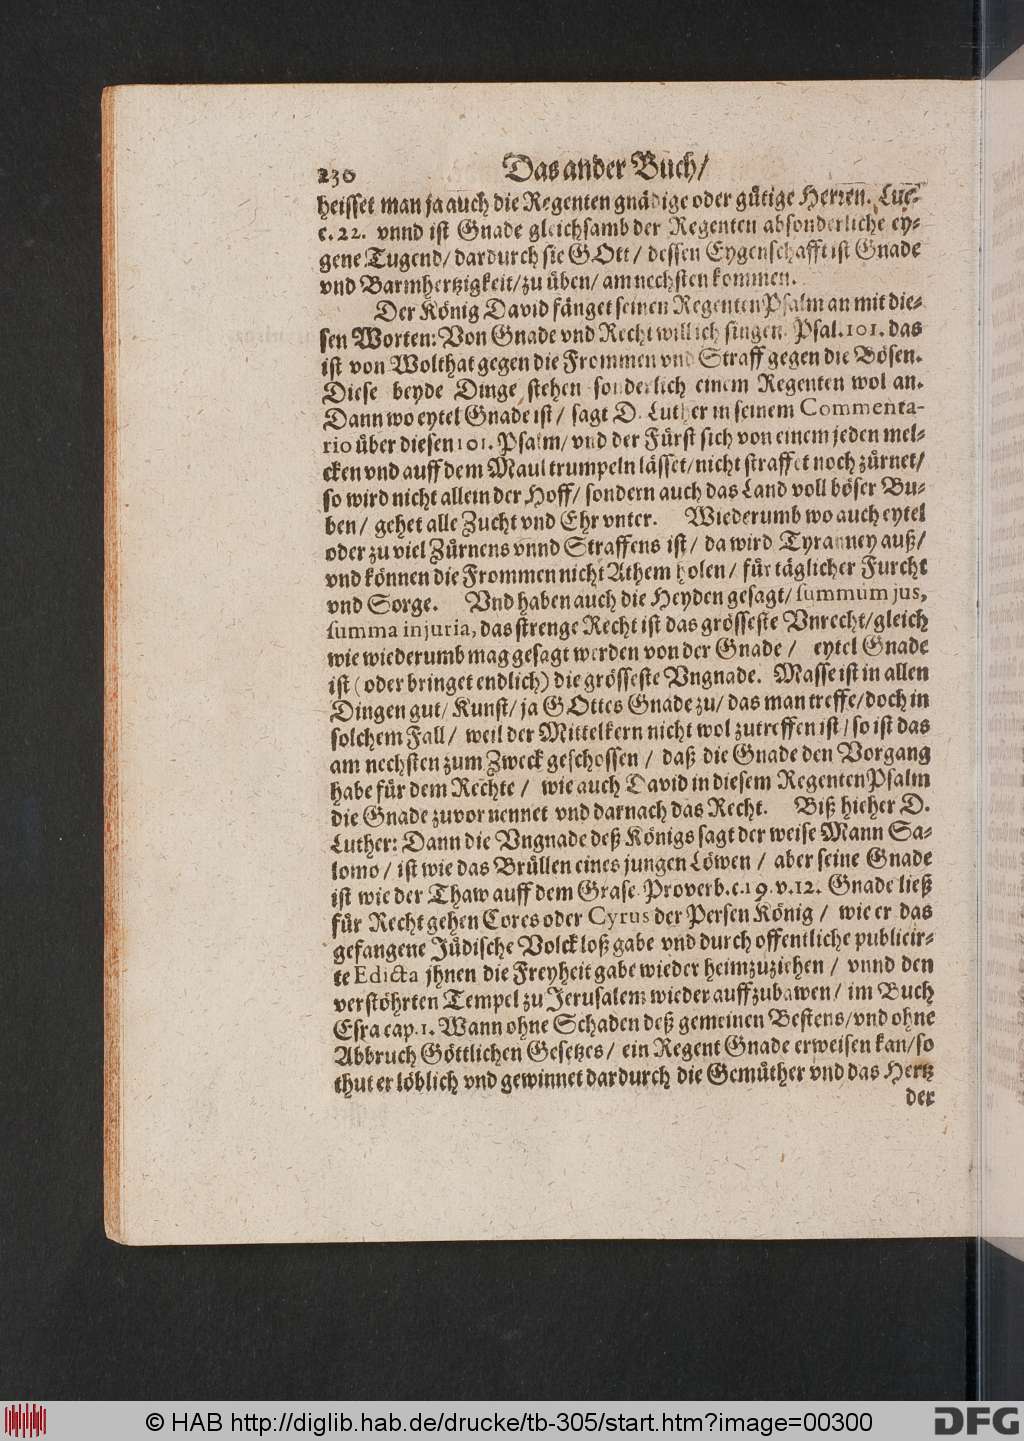 230 Das ander Buch/
heisset man ja auch die Regenten gnädige oder gütige Herren. Luc.
c. 22. vnnd ist Gnade gleichsamb der Regenten absonderliche ey-
gene Tugend/ dardurch sie GOtt/ dessen Eygenschafft ist Gnade
vnd Barmhertzigkeit/ zu üben/ am nechsten kommen.
Der König David fänget seinen Regenten Psalm an mit die-
sen Worten: Von Gnade vnd Recht will ich singen. Psal. 101. das
ist von Wolthat gegen die Frommen vnd Straff gegen die Bösen.
Diese beyde Dinge stehen sonderlich einem Regenten wol an.
Dann wo eytel Gnade ist/ sagt D. Luther in seinem Commenta-
rio über diesen 101. Psalm/ vnd der Fürst sich von einem jeden mel-
cken vnd auff dem Maul trumpeln lässet/ nicht straffet noch zürnet/
so wird nicht allein der Hoff/ sondern auch das Land voll böser Bu-
ben/ gehet alle Zucht vnd Ehr vnter. Wiederumb wo auch eytel
oder zu viel Zürnens vnnd Straffens ist/ da wird Tyranney auß/
vnd können die Frommen nicht Athem holen/ für täglicher Furcht
vnd Sorge. Vnd haben auch die Heyden gesagt/ summum jus,
summa injuria, das strenge Recht ist das grösseste Vnrecht/ gleich
wie wiederumb mag gesagt werden von der Gnade/ eytel Gnade
ist (oder bringet endlich) die grösseste Vngnade. Masse ist in allen
Dingen gut/ Kunst/ ja GOttes Gnade zu/ das man treffe/ doch in
solchem Fall/ weil der Mittelkern nicht wol zutreffen ist/ so ist das
am nechsten zum Zweck geschossen/ daß die Gnade den Vorgang
habe für dem Rechte/ wie auch David in diesem Regenten Psalm
die Gnade zuvor nennet vnd darnach das Recht. Biß hieher D.
Luther: Dann die Vngnade deß Königs sagt der weise Mann Sa-
lomo/ ist wie das Brüllen eines jungen Löwen/ aber seine Gnade
ist wie der Thaw auff dem Grase. Proverb. c. 19. v. 12. Gnade ließ
für Recht gehen Cores oder Cyrus der Persen König/ wie er das
gefangene Jüdische Volck loß gabe vnd durch offentliche publicir-
te Edicta jhnen die Freyheit gabe wieder heimzuziehen/ vnnd den
verstöhrten Tempel zu Jerusalem wieder auffzubawen/ im Buch
Esra cap. 1. Wann ohne Schaden deß gemeinen Bestens/ vnd ohne
Abbruch Göttlichen Gesetzes/ ein Regent Gnade erweisen kan/ so
thut er löblich vnd gewinnet dardurch die Gemüther vnd das Hertz
der
© HAB http://diglib.hab.de/drucke/tb-305/start.htm?image=00300
DFG